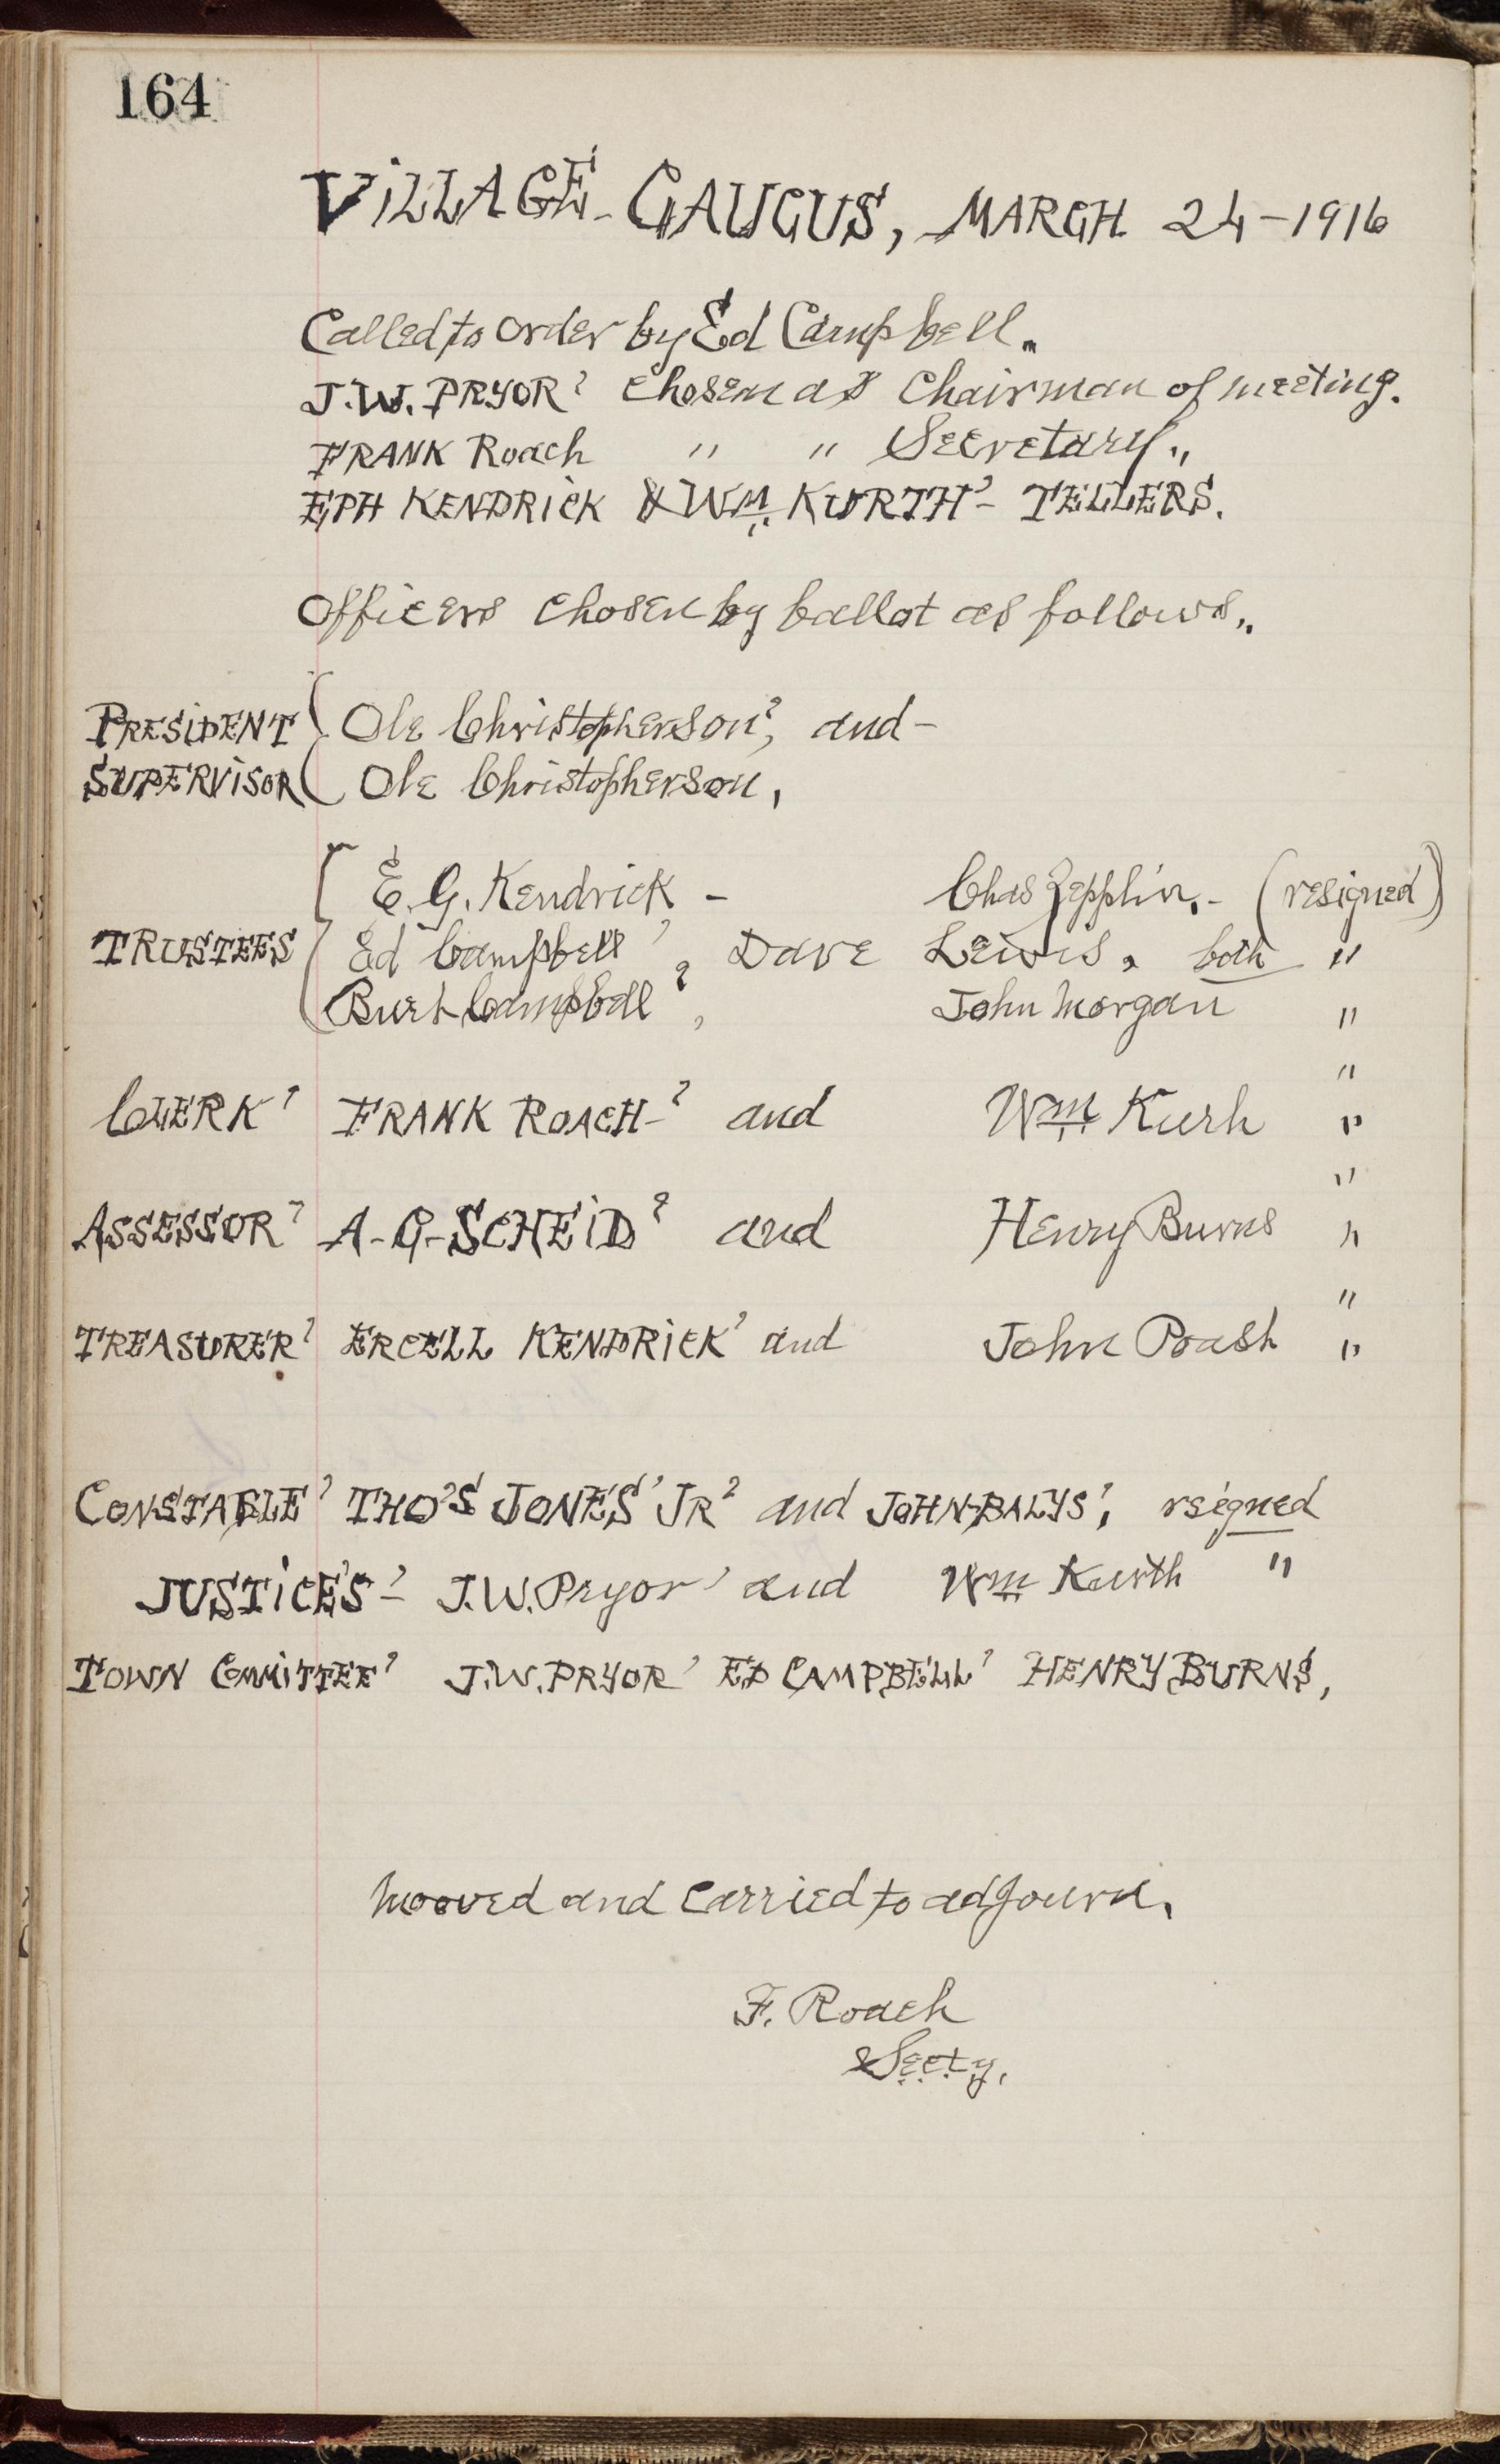 164
VILLAGE - CAUCUS, MARCH 24-1916
Called to order by Ed Campbell.
J.W. PRYOR, chosen as Chairman of meeting.
FRANK Roach " " Secretary.
EPH KENDRICK & Wm KURTH - TELLERS.
Officers chosen by ballot as follows.
PRESIDENT Ole Christopherson, and -
SUPERVISOR Ole Christopherson,
E. G. Kendrick - Chas Zepplin, - (resigned)
TRUSTEES Ed Campbell, Dave Lewis, both "
Burt Campbell, John Morgan "
"
CLERK, FRANK ROACH - and Wm Kurh "
"
ASSESSOR, A-G-SCHEID, and Henry Burns "
"
TREASURER, ERCELL KENDRICK, and John Poash "
CONSTABLE, THO'S JONES JR, and JOHN-BALYS, rsigned
JUSTICES - J.W. Pryor, and Wm Kurth "
TOWN COMMITTEE, J.W. PRYOR, ED CAMPBELL, HENRY BURNS,
Mooved and Carried to adjourn.
F. Roach
Secty.